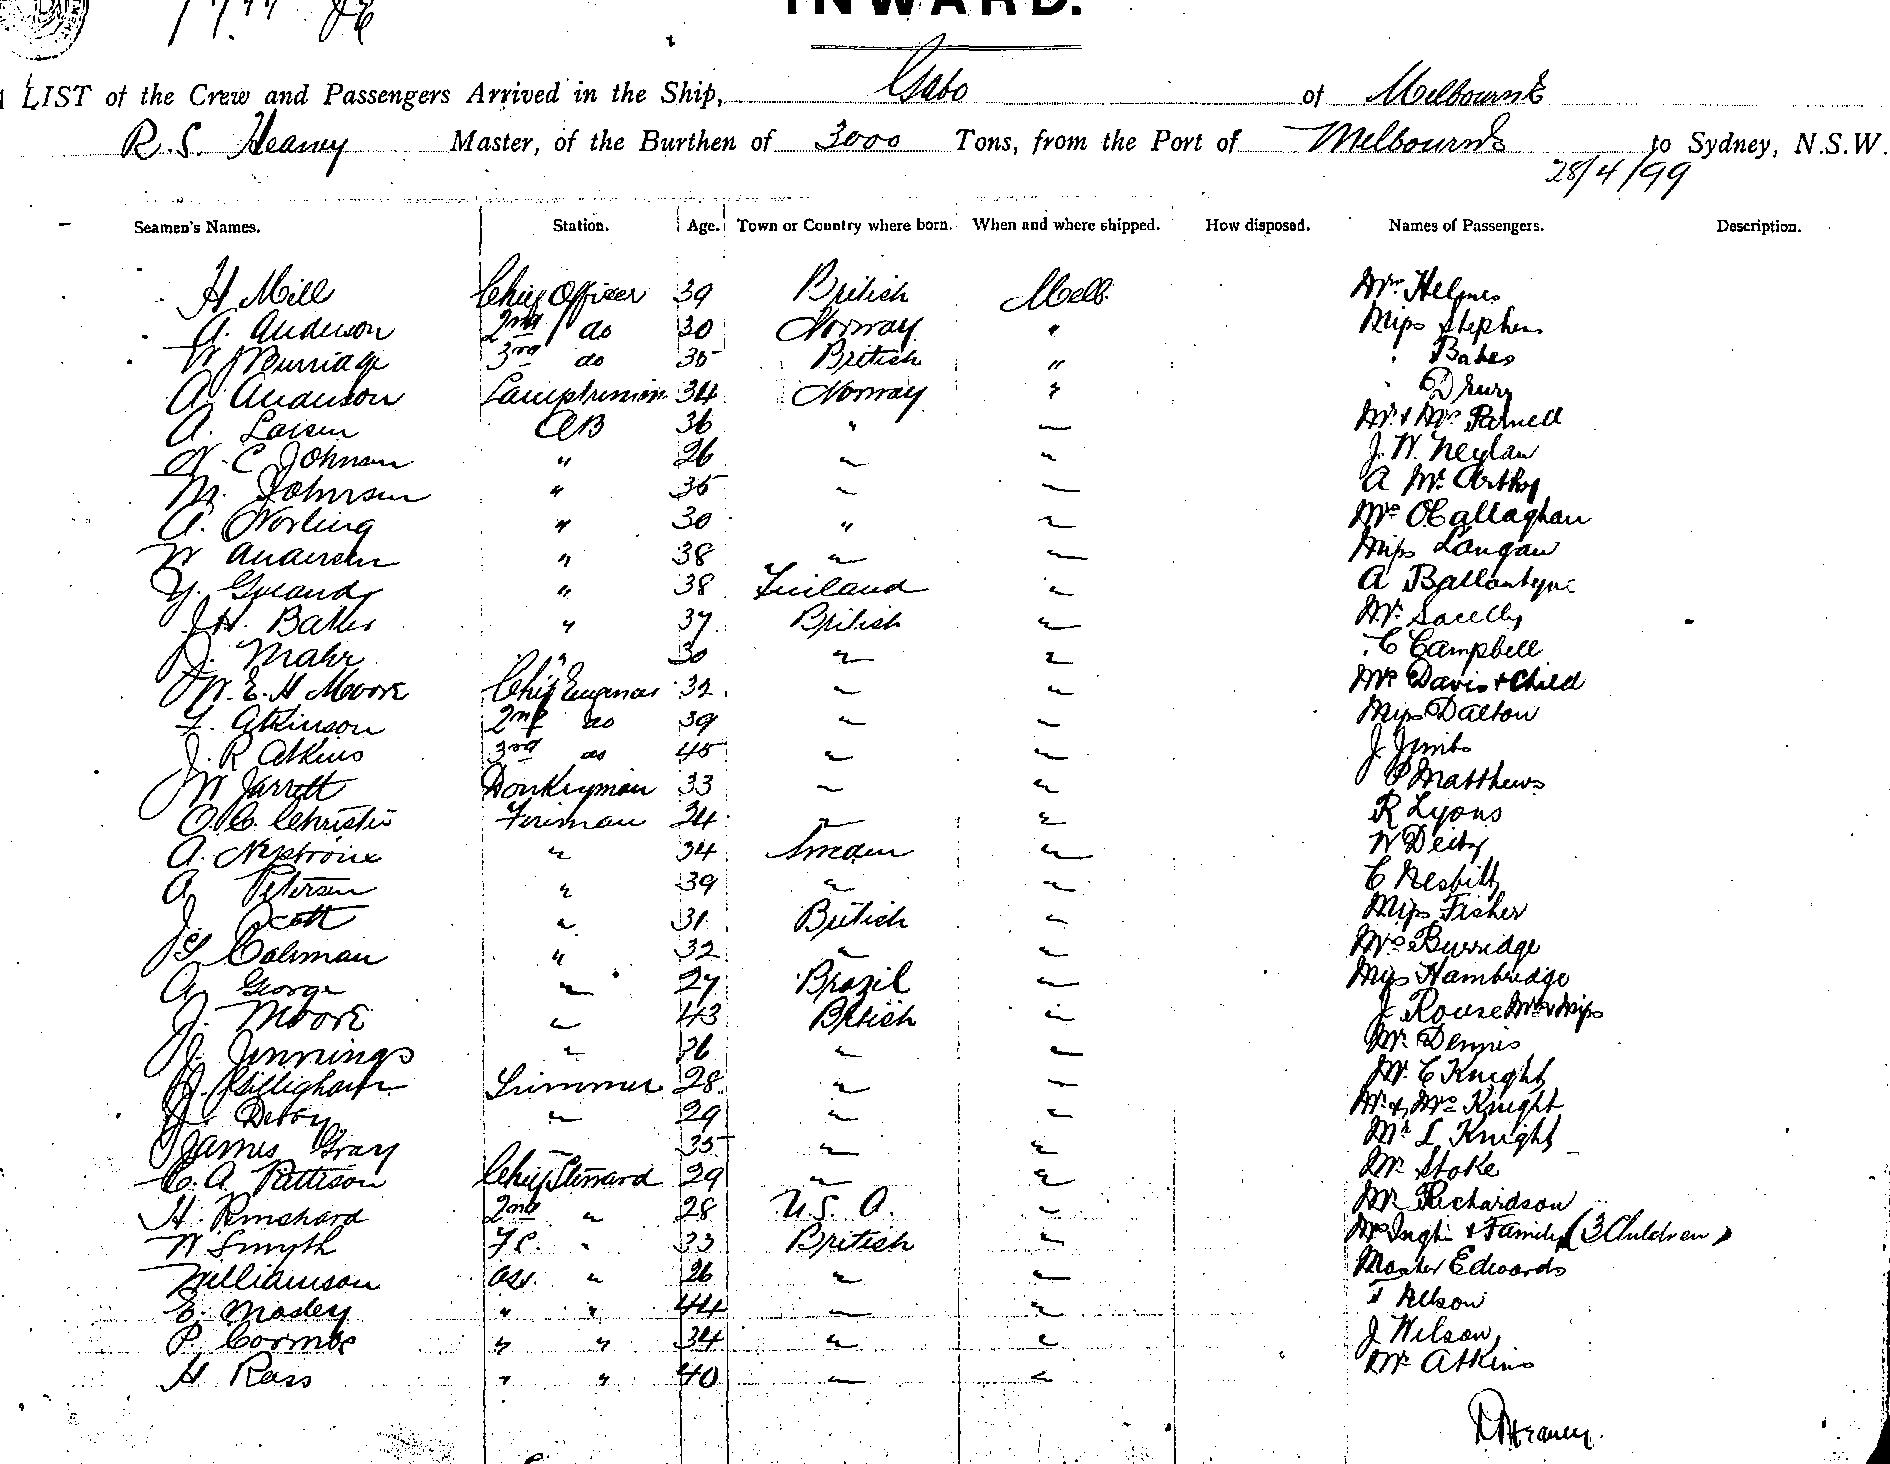 INWARD.
LIST of the Crew and Passengers Arrived in the Ship, Gabo of Melbourne
R. S. Heaney Master, of the Burthen of 3000 Tons, from the Port of Melbourne to Sydney, N.S.W.
28/4/99
Seamen's Names. Station. Age. Town or Country where born. When and where shipped. How disposed. Names of Passengers. Description.
H Mill Chief Officer 39 British Melb. Mrs Helmes
A. Anderson 2nd do 30 Norway " Miss Stephen
W J Burridge 3rd do 35 British " " Bates
A Anderson Lamptrimmer 34 Norway " " Drury
A. Larsen AB 36 " " Mr & Mrs Parnell
N. C Johnsen " 26 " " J. W. Neylan
M. Johnsen " 35 " " A McArthy
A. Norling " 30 " " Mrs OCallaghan
W Andersen " 38 " " Miss Langan
" 38 Finland " A Ballantyne
J H. " 37 British " Mr.
J. Mahr " 30 " " C Campbell
W. E. H Moore Chief Engineer 32 " " Mrs Davis & Child
F. Atkinson 2nd do 39 " " Miss Dalton
J. R Atkins 3rd do 45 " " J
W Jarrett Donkeyman 33 " " P Matthews
O. C. Christie Fireman 24 " " R Lyons
A. " 34 " W
A Petersen " 39 " " C Nesbitt
J. Scott " 31 British " Miss Fisher
G Coleman " 32 " " Mrs Burridge
A George " 27 Brazil " Miss Hambridge
J. Moore " 43 British " J Rouse Mrs & Miss
J. Jennings " 26 " " Mr. Dennis
Gillingham Trimmer 28 " " Mr. C Knight
J. " 29 " " Mr & Mrs Knight
James Gray " 35 " " Mr L Knight
C. A. Pattison Chief Steward 29 " " Mr Stoke
H. Rinshard 2nd " 28 U. S. A. " Mr Richardson
W Smyth F.C. " 33 British " Mrs & Family (3 Children)
Williamson Ass. " 26 " " Master Edwards
E. Mosley " " 44 " " Nelson
P. Coombe " " 34 " " J Wilson
H Ross " " 40 " " Mr Atkins
R S Heaney